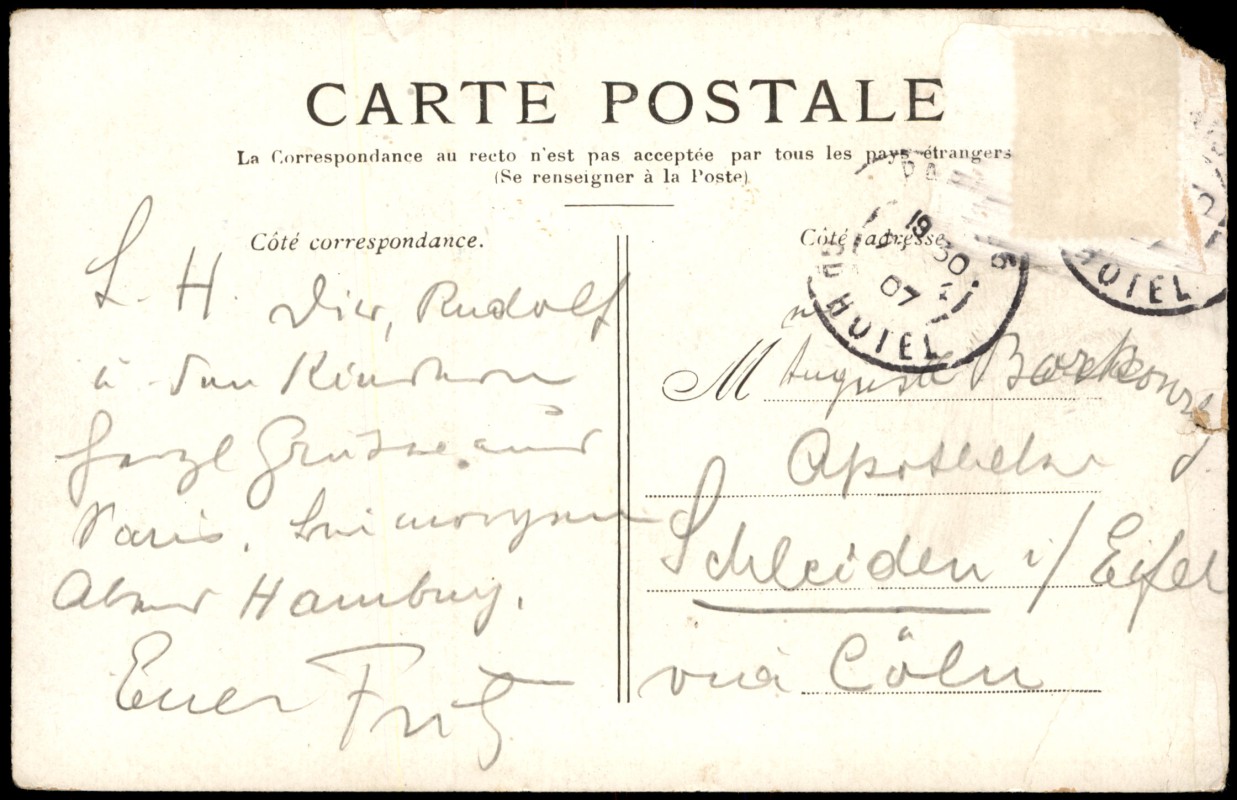 CARTE POSTALE
La Correspondance au recto n'est pas acceptée par tous les pays étrangers
(Se renseigner à la Poste)
Côté correspondance.
L. H. Dir, Rudolf
u den Kindern
herzl Grüsse aus
Paris. bin morgen
Abend Hamburg.
Euer Fritz
Côté adresse
19 30
07
HOTEL
HOTEL
M Auguste
Apotheke
Schleiden i/ Eifel
via Cöln